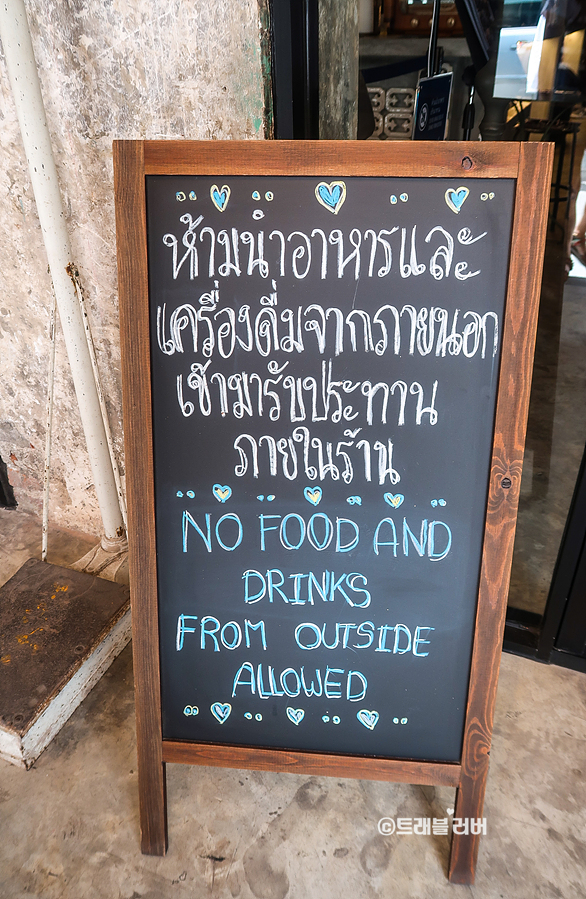 ห้ามนำอาหารและ
เครื่องดื่มจากภายนอก
เข้ามารับประทาน
ภายในร้าน
NO FOOD AND
DRINKS
FROM OUTSIDE
ALLOWED
©트래블러버